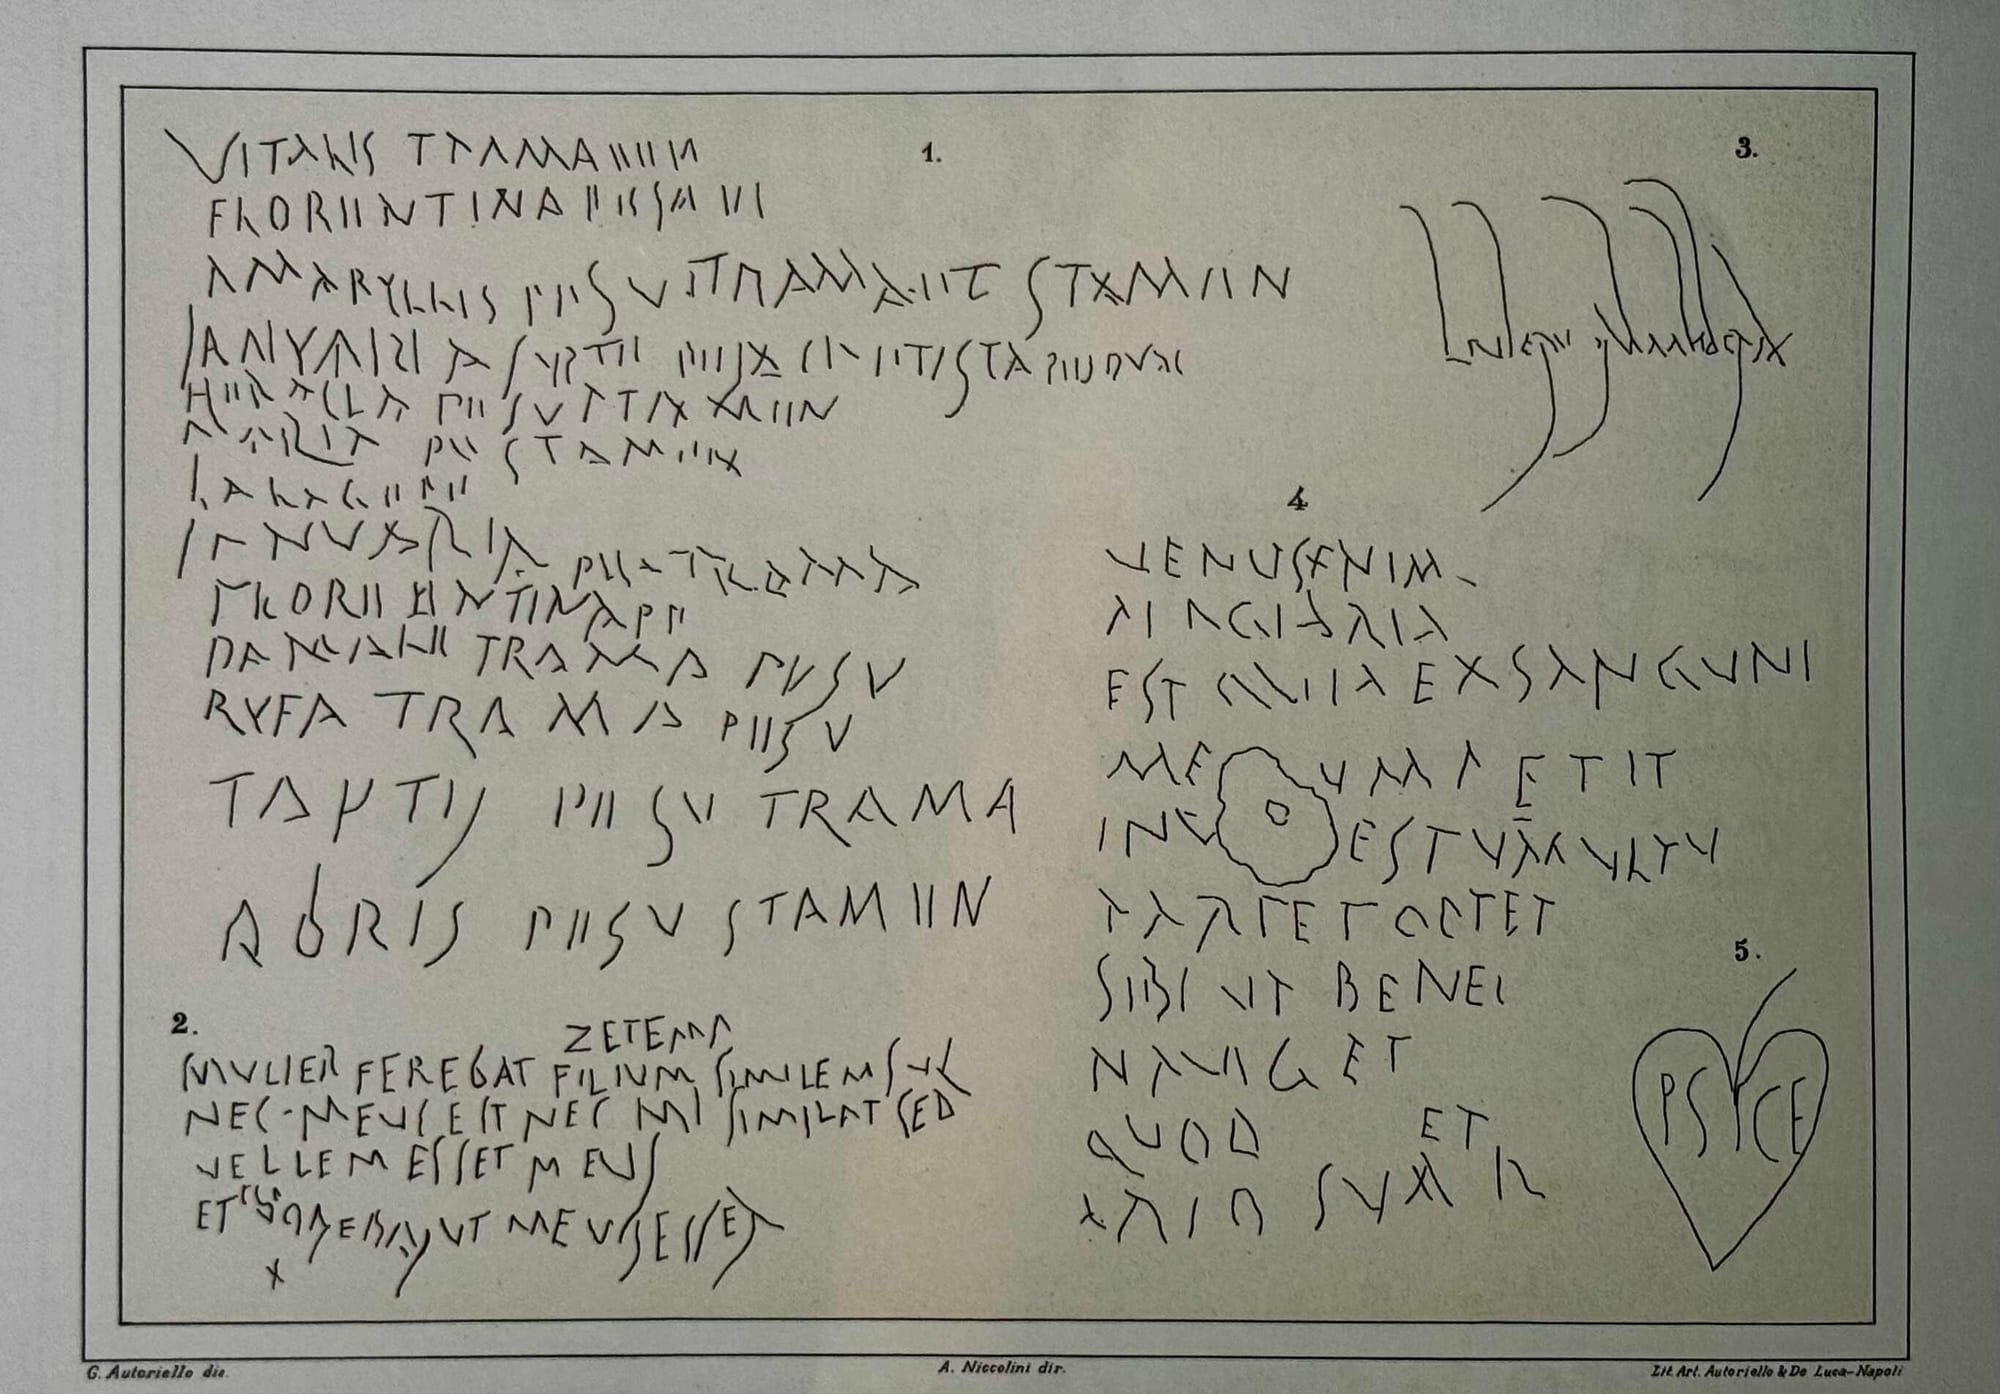 VITALIS TRAMA
1.
FLORIINTINA PIISA III
AMARYLLIS PIISV TRAMA IIT STAMIIN
IANVARIA SVPTII PIISA
HIIRACLA PIISV STAMIIN
MARIA PII STAMIIN
LALAGII PII
IANVARIA PII TRAMA
FLORIINTINA PII
DAMALII TRAMA PIISV
RVFA TRAMA PIISV
PIISV TRAMA
DORIS PIISV STAMIIN
2.
ZETEMA
MVLIER FEREBAT FILIVM SIMILEM SVI
NEC MEVS EST NEC MI SIMILAT SED
VELLEM ESSET MEVS
ET EGO VOLEBA VT MEVS ESSET
3.
4
VENUS ENIM
PLAGIARIA
EST QVIA EXSANGVNI
MEVM PETIT
IN VIESTVMVLTV
PARIET OPTET
SIBI VT BENE
NAVIGET
QVOD ET
ARIO SVA R
5.
PSYCE
G. Autoriello dis.
A. Niccolini dir.
Lit. Art. Autoriello & De Luca-Napoli